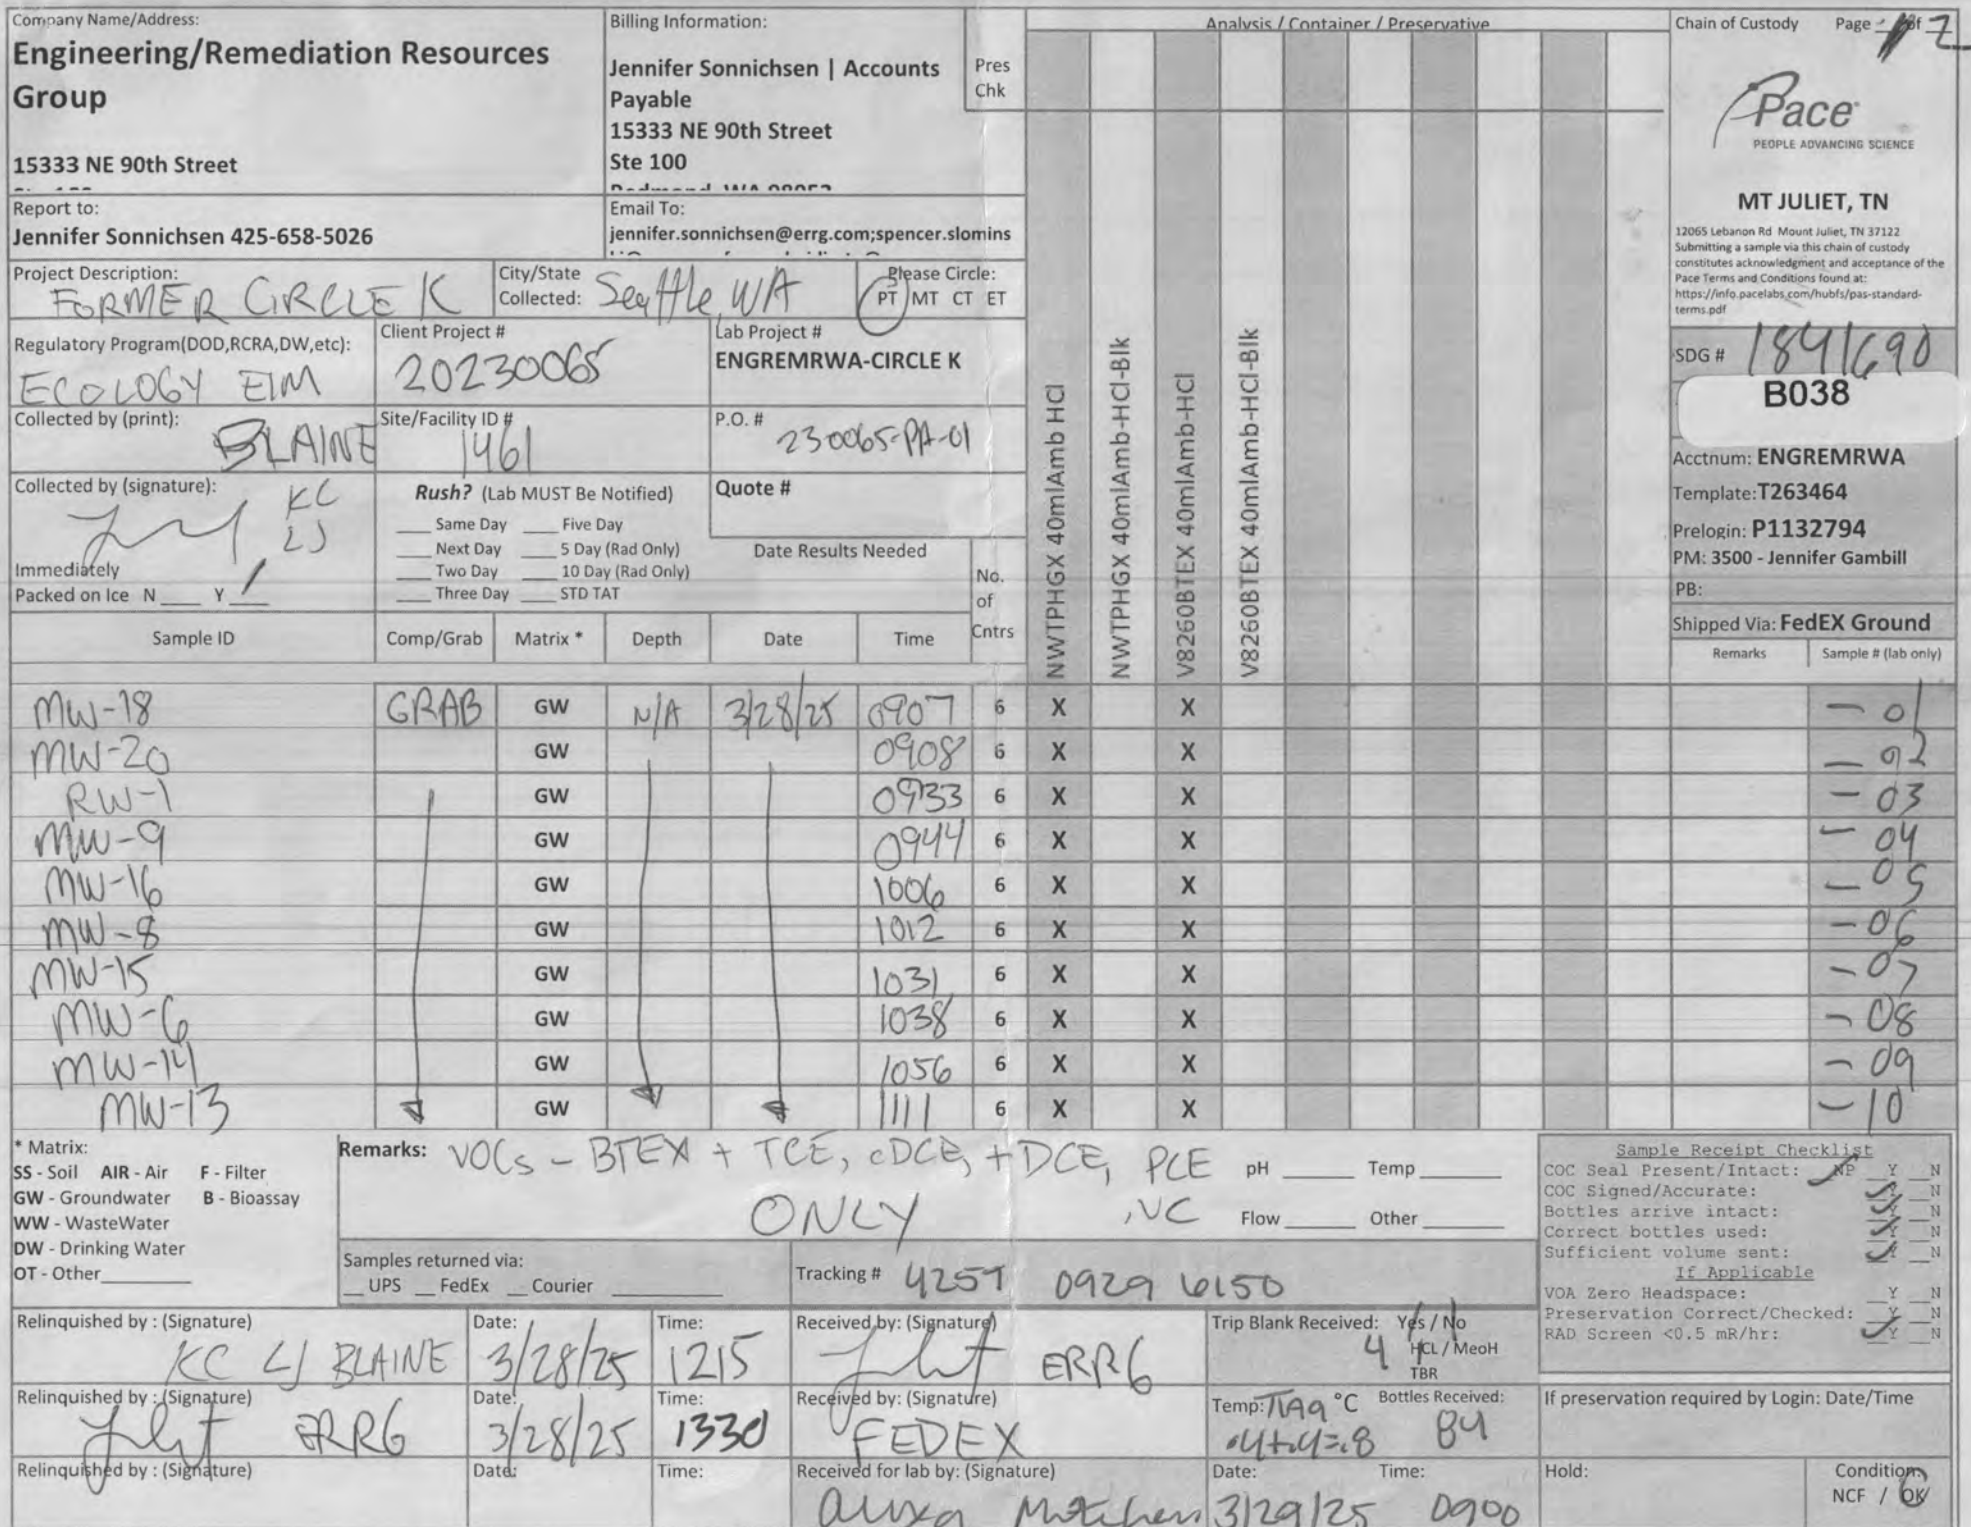 Company Name/Address:
Engineering/Remediation Resources
Group
15333 NE 90th Street
Billing Information:
Jennifer Sonnichsen | Accounts
Payable
15333 NE 90th Street
Ste 100
Pres
Chk
Analysis / Container / Preservative
Chain of Custody Page of 2
Pace
PEOPLE ADVANCING SCIENCE
MT JULIET, TN
12065 Lebanon Rd Mount Juliet, TN 37122
Submitting a sample via this chain of custody
constitutes acknowledgment and acceptance of the
Pace Terms and Conditions found at:
https://info.pacelabs.com/hubfs/pas-standard-
terms.pdf
Report to:
Jennifer Sonnichsen 425-658-5026
Email To:
jennifer.sonnichsen@errg.com;spencer.slomins
Project Description:
FORMER CIRCLE K
City/State
Collected: Seattle, WA
Please Circle:
PT MT CT ET
Regulatory Program(DOD,RCRA,DW,etc):
ECOLOGY EIM
Client Project #
20230065
Lab Project #
ENGREMRWA-CIRCLE K
Collected by (print):
BLAINE
Site/Facility ID #
1461
P.O. #
230065-PA-01
Collected by (signature):
KC
LJ
Immediately
Packed on Ice N ___ Y ___
Rush? (Lab MUST Be Notified)
___ Same Day ___ Five Day
___ Next Day ___ 5 Day (Rad Only)
___ Two Day ___ 10 Day (Rad Only)
___ Three Day ___ STD TAT
Quote #
Date Results Needed
No.
of
Cntrs
NWTPHGX 40mlAmb HCl
NWTPHGX 40mlAmb-HCl-Blk
V8260BTEX 40mlAmb-HCl
V8260BTEX 40mlAmb-HCl-Blk
SDG # 1841690
B038
Acctnum: ENGREMRWA
Template:T263464
Prelogin: P1132794
PM: 3500 - Jennifer Gambill
PB:
Shipped Via: FedEX Ground
Sample ID Comp/Grab Matrix * Depth Date Time Remarks Sample # (lab only)
MW-18 GRAB GW N/A 3/28/25 0907 6 X X -01
MW-20 GW 0908 6 X X -02
RW-1 GW 0933 6 X X -03
MW-9 GW 0944 6 X X -04
MW-16 GW 1006 6 X X -05
MW-8 GW 1012 6 X X -06
MW-15 GW 1031 6 X X -07
MW-6 GW 1038 6 X X -08
MW-14 GW 1056 6 X X -09
MW-13 GW 1111 6 X X -10
* Matrix:
SS - Soil AIR - Air F - Filter
GW - Groundwater B - Bioassay
WW - WasteWater
DW - Drinking Water
OT - Other
Remarks: VOCs - BTEX + TCE, cDCE, +DCE, PCE
ONLY ,VC
pH ___ Temp ___
Flow ___ Other ___
Samples returned via:
__ UPS __ FedEx __ Courier
Tracking # 4259 0929 6150
Sample Receipt Checklist
COC Seal Present/Intact: NP Y N
COC Signed/Accurate: Y N
Bottles arrive intact: Y N
Correct bottles used: Y N
Sufficient volume sent: Y N
If Applicable
VOA Zero Headspace: Y N
Preservation Correct/Checked: Y N
RAD Screen <0.5 mR/hr: Y N
Relinquished by : (Signature)
KC LJ BLAINE
Date:
3/28/25
Time:
1215
Received by: (Signature)
ERRG
Trip Blank Received: Yes / No
4 HCL / MeoH
TBR
Relinquished by : (Signature)
ERRG
Date:
3/28/25
Time:
1330
Received by: (Signature)
FEDEX
Temp: °C
.4+.4=.8
Bottles Received:
84
If preservation required by Login: Date/Time
Relinquished by : (Signature)
Date:
Time:
Received for lab by: (Signature)
Date:
3/29/25
Time:
0900
Hold:
Condition:
NCF / OK